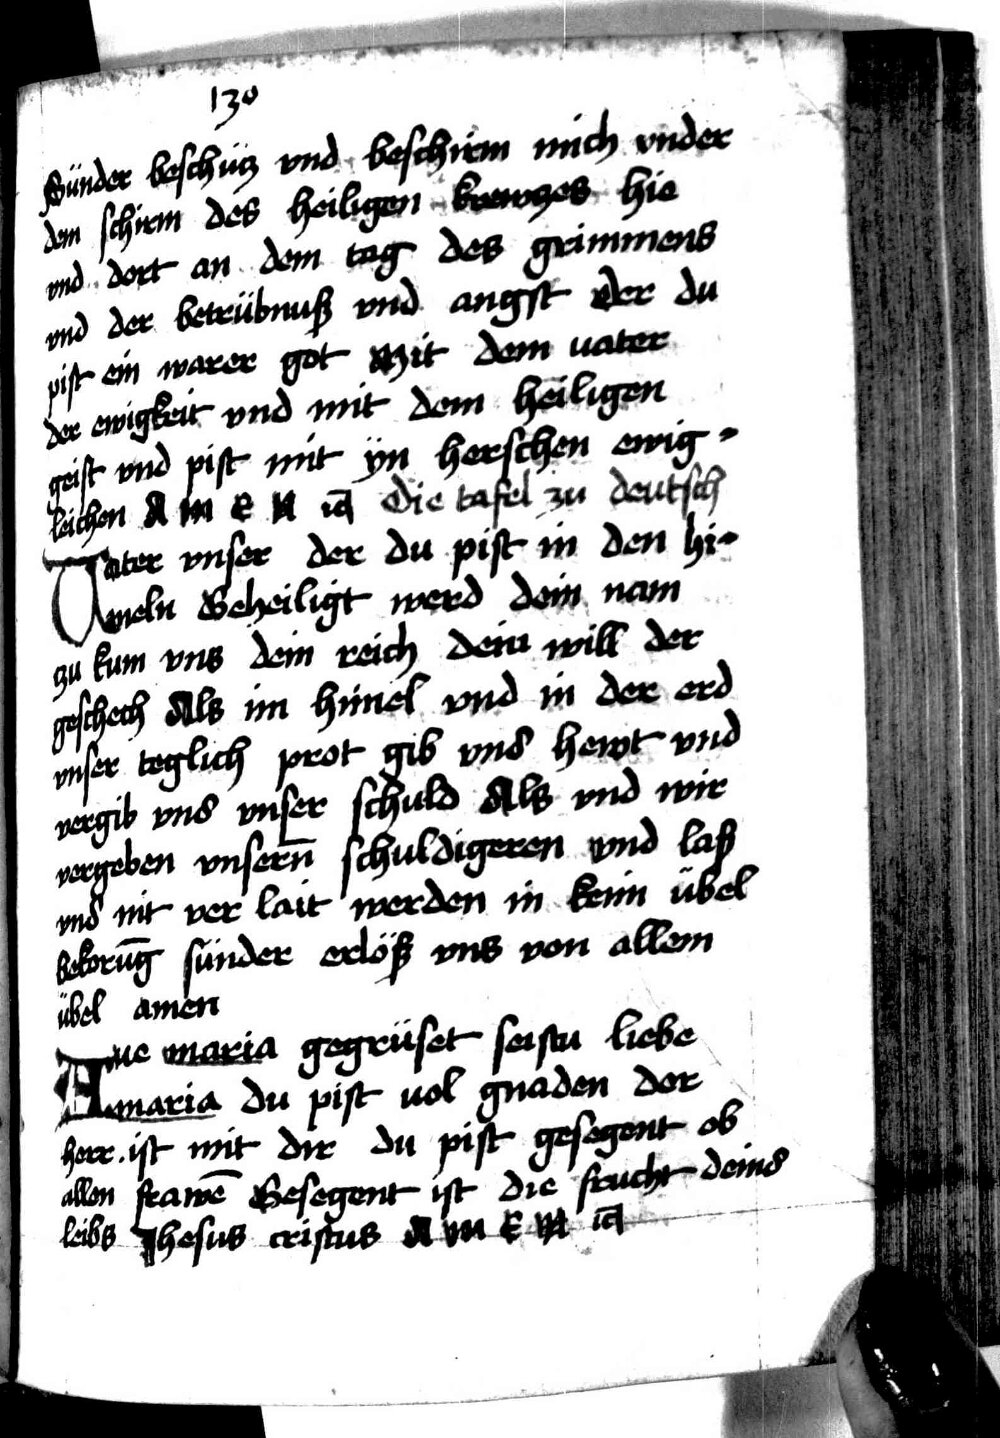 130
Sünder beschücz vnd beschirm mich vnder
dem schirm des heiligen krewczes hie
vnd dort an dem tag des grimmens
vnd der betrübnuß vnd angst Der du
pist ein warer got Mit dem uater
der ewigkeit vnd mit dem heiligen
geist vnd pist mit yn herschen ewig-
leichen A M E N Die tafel zu deutsch
Vater vnser der du pist in den hi-
meln Geheiligt werd dein nam
zu kum vns dein reich dein will der
geschech Als im himel vnd in der erd
vnser teglich prot gib vns hewt vnd
vergib vns vnser schuld Als vnd wir
vergeben vnsern̄ schuldigeren vnd laß
vns nit ver lait werden in kein übel
bekorūg sünder erlöß vns von allem
übel amen
Aue maria gegrüset seistu liebe
maria du pist uol gnaden der
herr ist mit dir du pist gesegent ob
allen frawē Gesegent ist die frucht deins
leibs Jhesus cristus A M E N